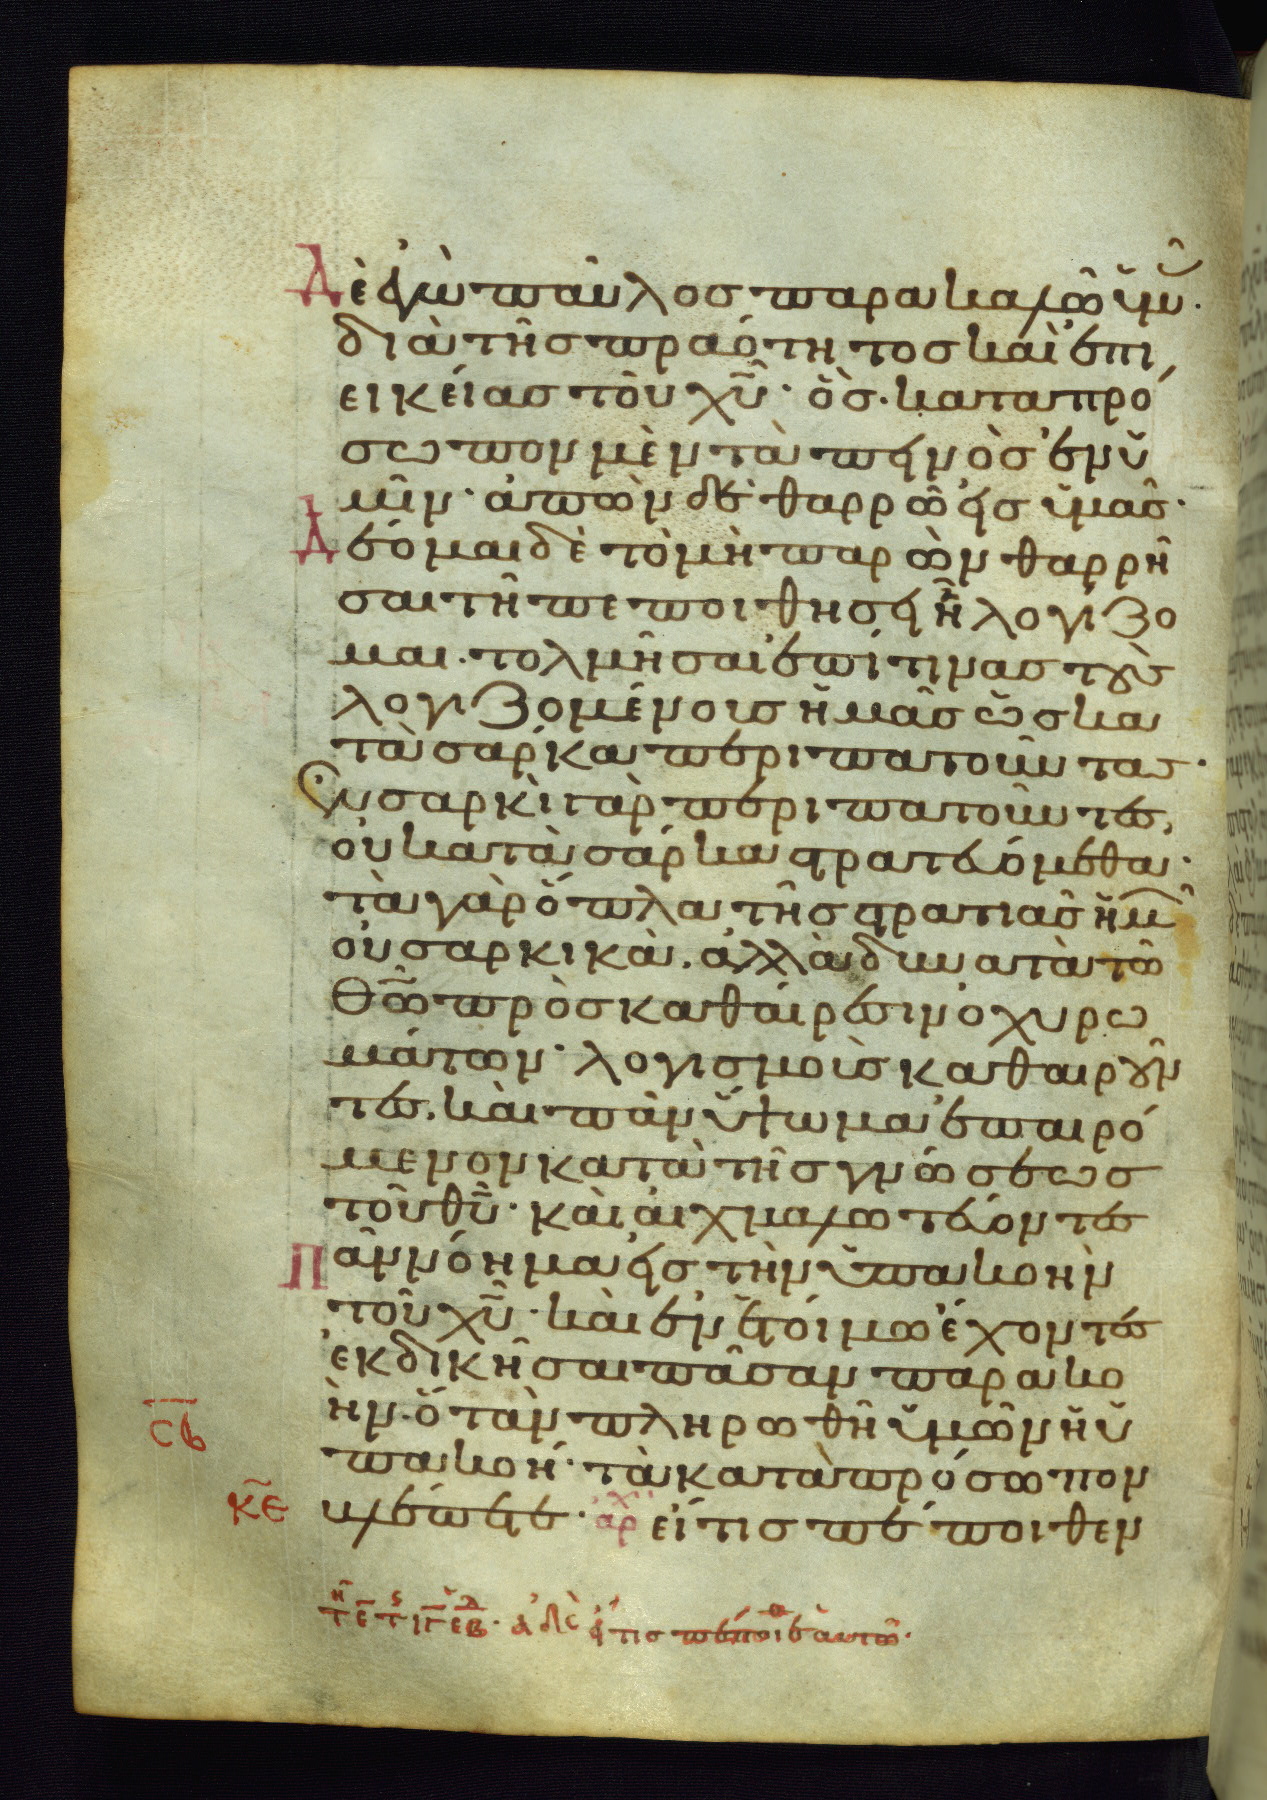 Δὲ ἐγὼ παῦλος παρακαλῶ ὑμ
διὰ τῆς πραότητος καὶ ἐπι
εικείας τοῦ χῦ· ὃς· κατα πρό
σωπον μὲν ταπεινὸς ἐν ὑ
μῖν· ἀπὼν δὲ θαρρῶ εἰς ὑμᾶς·
Δέομαι δὲ τὸ μὴ παρὼν θαρρῆ
σαι τῇ πεποιθήσει ᾗ λογίζο
μαι· τολμῆσαι ἐπί τινας τοὺς
λογιζομένους ἡμᾶς ὡς κα
τὰ σάρκα περιπατοῦντας·
Ἐν σαρκὶ γὰρ περιπατοῦντες,
οὐ κατὰ σάρκα στρατευόμεθα·
τὰ γὰρ ὅπλα τῆς στρατιᾶς ἡμ
οὐ σαρκικὰ. ἀλλὰ δυνατὰ τῶ
θῶ πρὸς καθαίρεσιν ὀχυρω
μάτων· λογισμοὺς καθαιροῦν
τες. καὶ πᾶν ὕψωμα ἐπαιρό
μενον κατὰ τῆς γνώσεως
τοῦ θῦ· καὶ αἰχμαλωτεύοντες
Πᾶν νόημα εἰς τὴν ὑπακοὴν
τοῦ χῦ· καὶ ἐν ἑτοίμω ἔχοντες
ἐκδικῆσαι πᾶσαν παρακο
ὴν· ὅταν πληρωθῇ ὑμῶν ἡ ὑ
σβ
πακοή· τὰ κατὰ πρόσωπον
κε βλέπετε· ἀρχ εἴ τις πέποιθεν
ἀδε εἴ τις πέποιθ ἑαυτῶ·